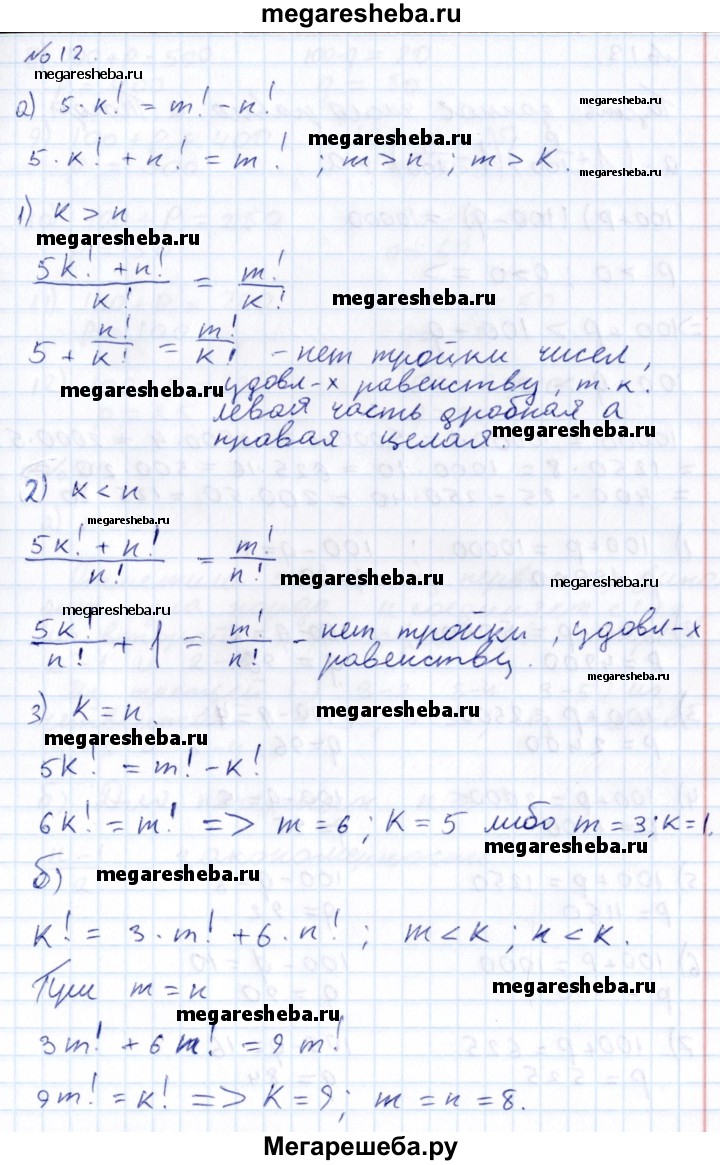 megaresheba.ru
№ 12.
megaresheba.ru
а) 5·k! = m! - n!
megaresheba.ru
megaresheba.ru
5·k! + n! = m! ; m > n ; m > K.
megaresheba.ru
1) k > n
megaresheba.ru
(5k! + n!)/k! = m!/k!
megaresheba.ru
5 + n!/k! = m!/k! - нет тройки чисел,
megaresheba.ru
удовл-х равенству, т.к.
левая часть дробная а
megaresheba.ru
правая целая.
2) k < n
megaresheba.ru
(5k! + n!)/n! = m!/n!
megaresheba.ru
megaresheba.ru
megaresheba.ru
5k!/n! + 1 = m!/n! - нет тройки, удовл-х
равенству.
megaresheba.ru
3) K = n.
megaresheba.ru
megaresheba.ru
5k! = m! - k!
6k! = m! => m = 6; K = 5 либо m = 3; k = 1.
megaresheba.ru
б)
megaresheba.ru
k! = 3·m! + 6·n! ; m < k ; n < k.
При m = n
megaresheba.ru
megaresheba.ru
3m! + 6m! = 9m!
9m! = k! => K = 9; m = n = 8.
Мегарешеба.ру